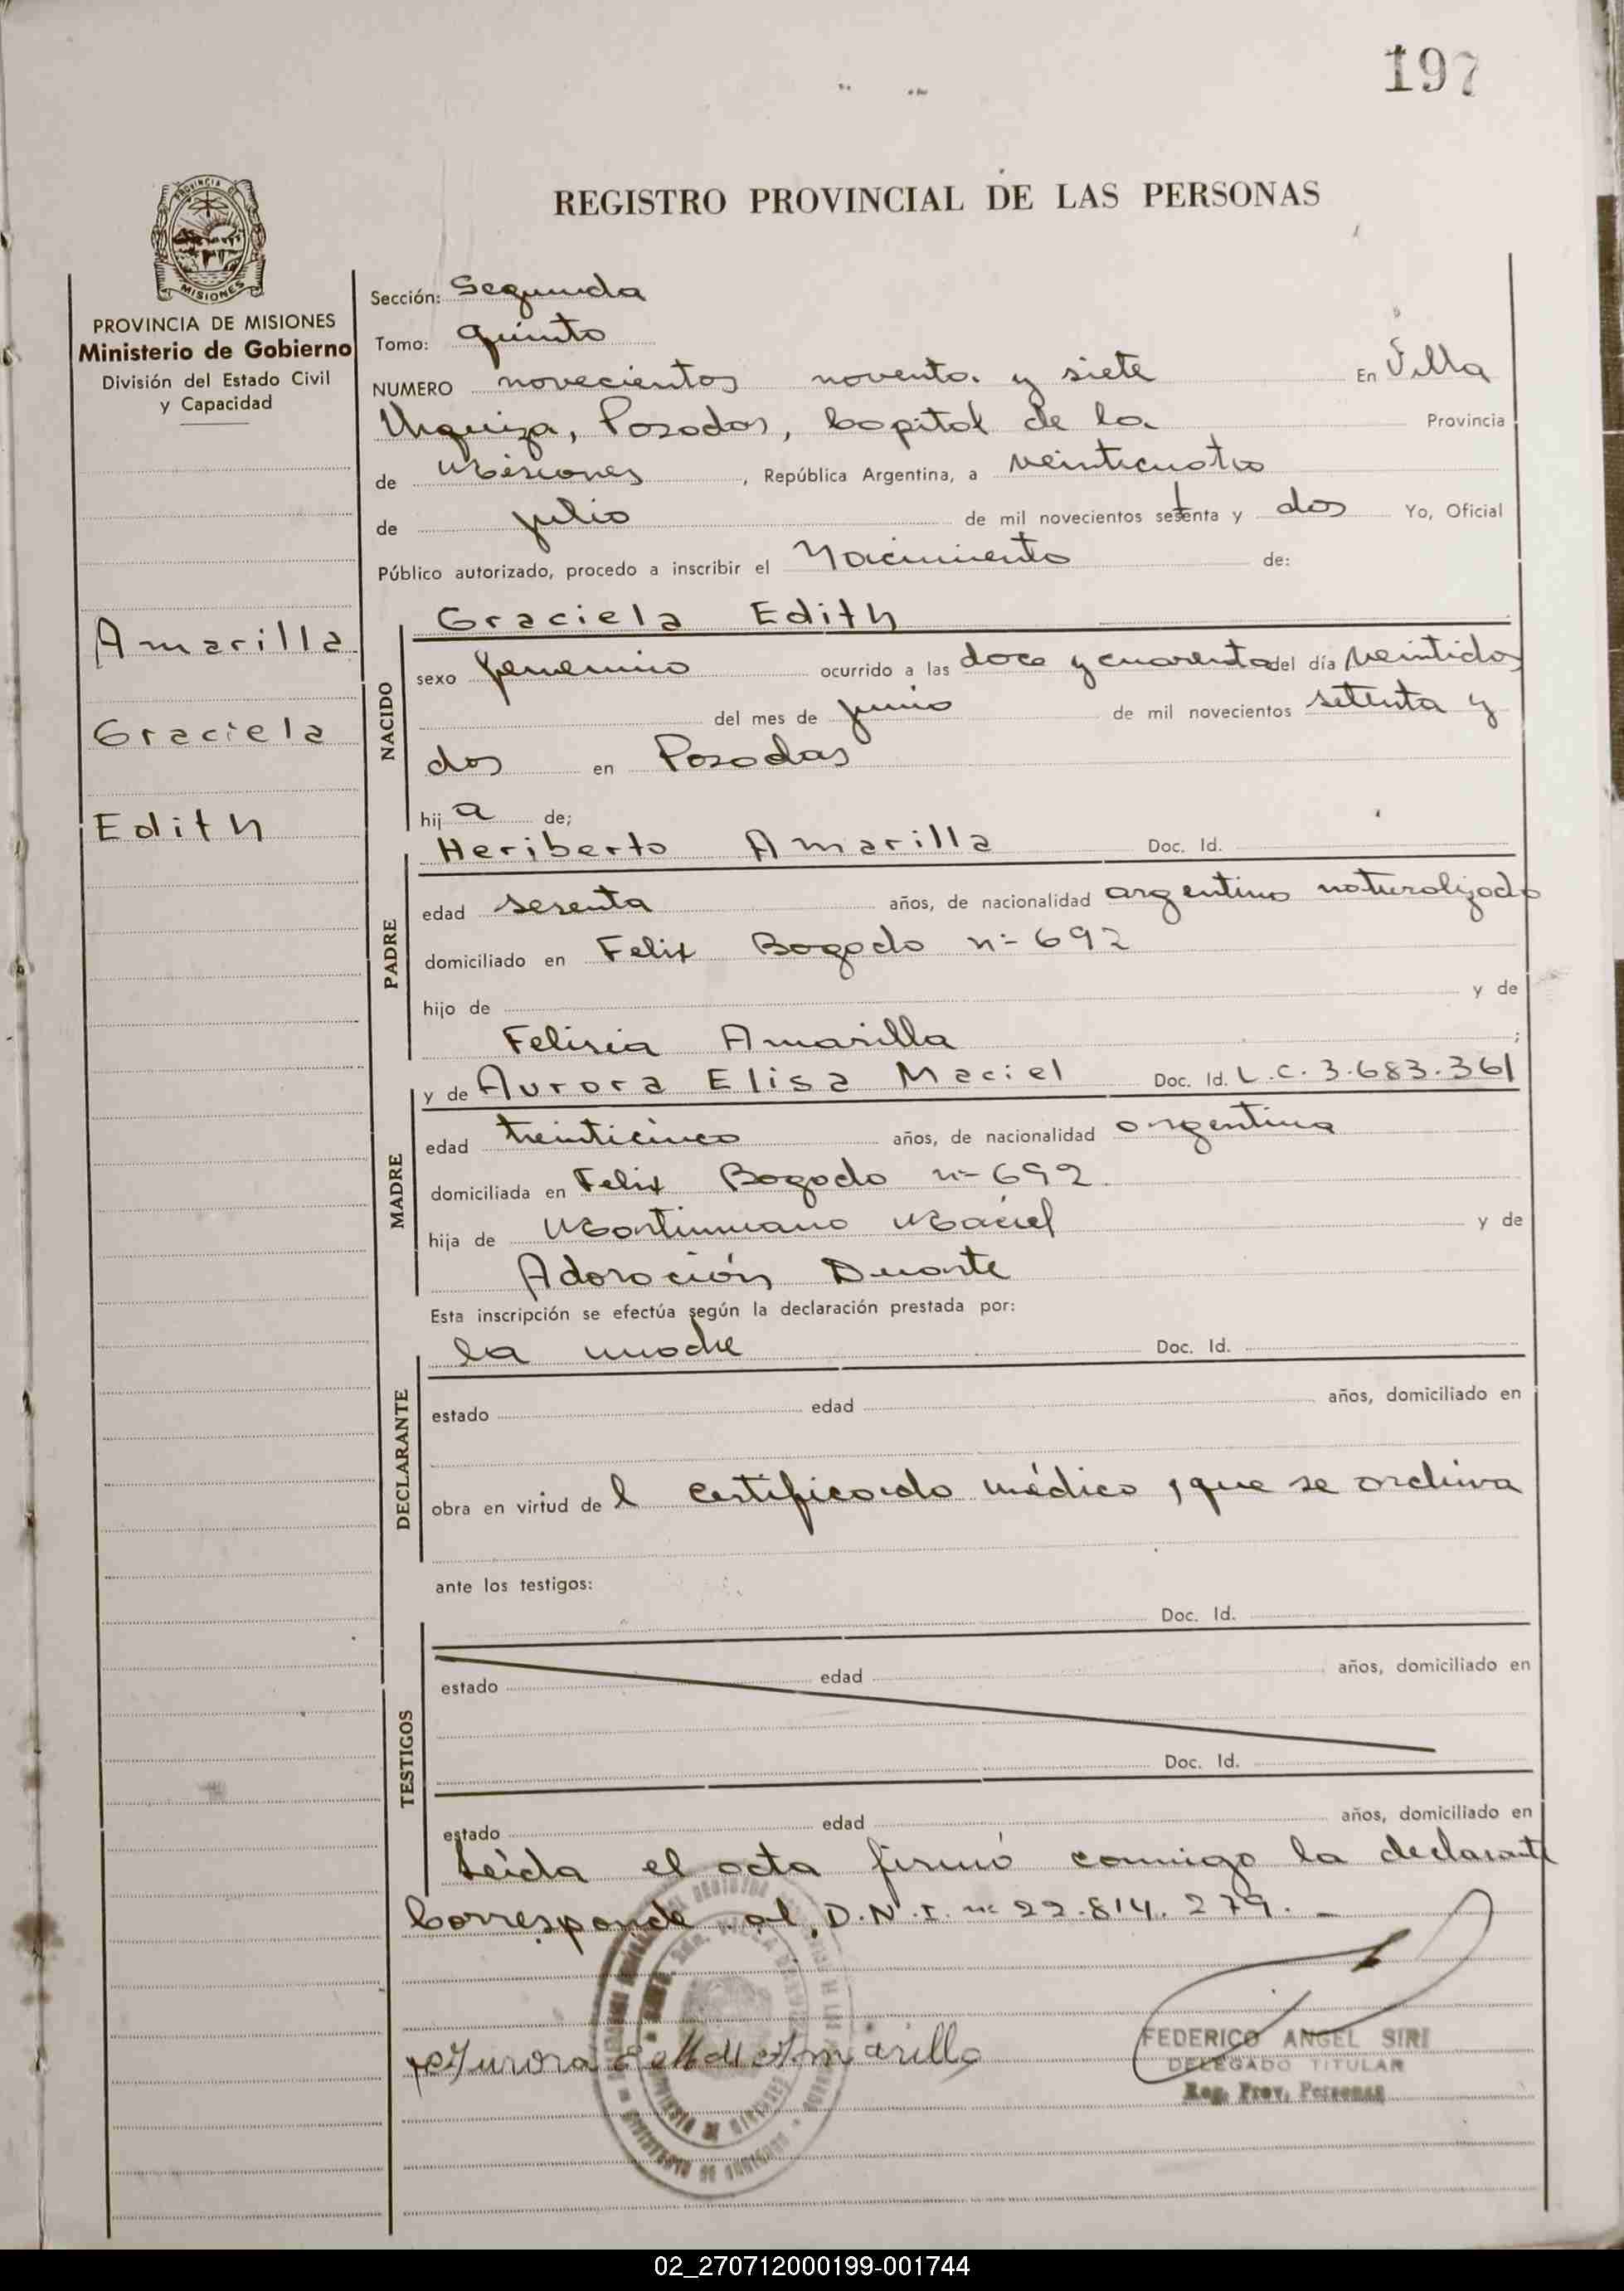 197
REGISTRO PROVINCIAL DE LAS PERSONAS
PROVINCIA DE
MISIONES
PROVINCIA DE MISIONES
Ministerio de Gobierno
División del Estado Civil
y Capacidad
Amarilla
Graciela
Edith
Sección: Segunda
Tomo: quinto
NUMERO novecientos noventa y siete En Villa
Urquiza, Posadas, Capital de la Provincia
de Misiones, República Argentina, a veinticuatro
de julio de mil novecientos setenta y dos Yo, Oficial
Público autorizado, procedo a inscribir el Nacimiento de:
NACIDO
Graciela Edith
sexo femenino ocurrido a las doce y cuarenta del día veintidos
del mes de junio de mil novecientos setenta y
dos en Posadas
hij a de;
PADRE
Heriberto Amarilla Doc. Id.
edad sesenta años, de nacionalidad argentino naturalizado
domiciliado en Felix Bogado nº 692
hijo de y de
Felisia Amarilla ;
MADRE
y de Aurora Elisa Maciel Doc. Id. L.C. 3.683.361
edad treinticinco años, de nacionalidad argentina
domiciliada en Felix Bogado nº 692
hija de Martiniano Maciel y de
Adoración Duarte
Esta inscripción se efectúa según la declaración prestada por:
DECLARANTE
la madre Doc. Id.
estado edad años, domiciliado en
obra en virtud de l certificado médico, que se archiva
ante los testigos:
TESTIGOS
Doc. Id.
estado edad años, domiciliado en
Doc. Id.
estado edad años, domiciliado en
Leída el acta firmó conmigo la declarante
Corresponde al D.N.I. nº 22.814.279.-
Aurora E M de Amarilla
FEDERICO ANGEL SIRI
DELEGADO TITULAR
Reg. Prov. Personas
02_270712000199-001744